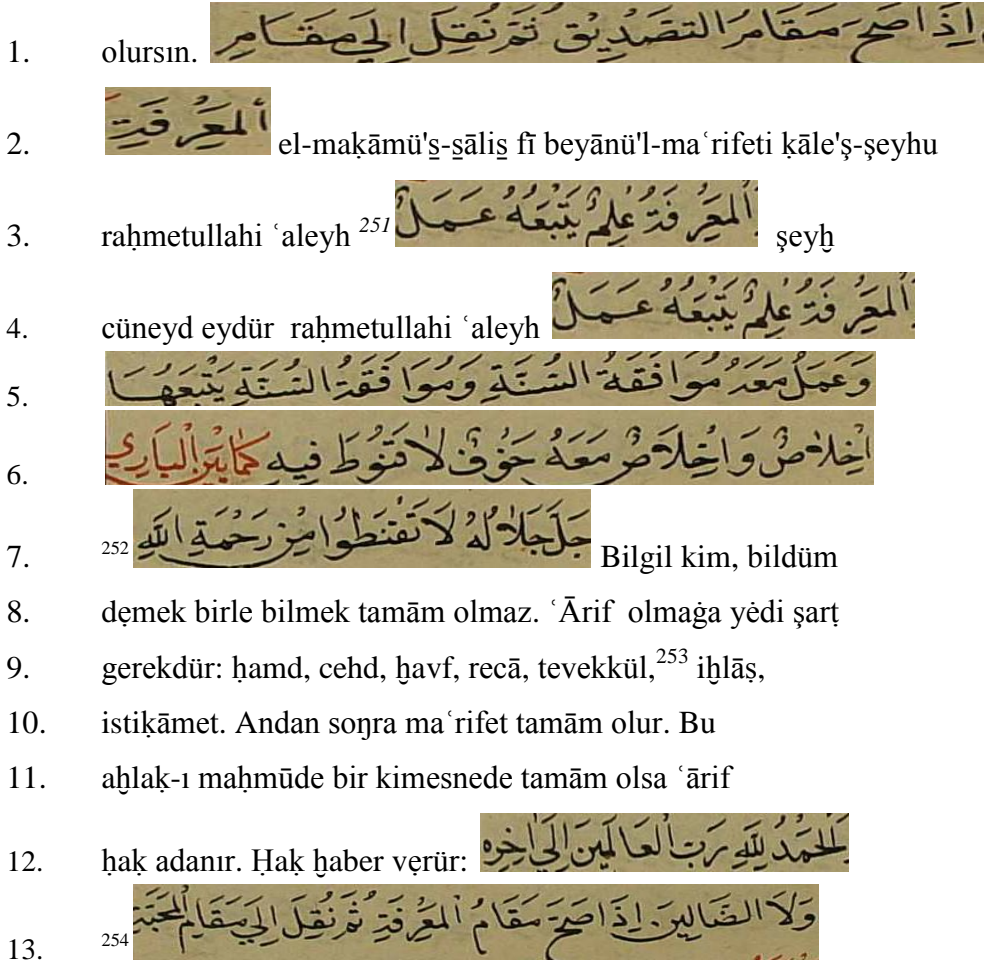 1. olursın. اِذَا صَحَّ مَقَامَ التَصْدِيْقِ ثُمَّ نُقِلَ اِلَي مَقَامِ
2. اَلْمَعْرِفَتِ el-maḳāmü's̱-s̱ālis̱ fī beyānü'l-maʿrifeti ḳāle'ş-şeyhu
3. raḥmetullahi ʿaleyh 251 اَلْمَعْرِفَةُ عِلْمٌ يَتْبَعُهُ عَمَلٌ şeyḫ
4. cüneyd eydür raḥmetullahi ʿaleyh اَلْمَعْرِفَةُ عِلْمٌ يَتْبَعُهُ عَمَلٌ
5. وَعَمَلٌ مَعَهُ مُوَافَقَةُ السُنَّةِ وَمُوَافَقَةُ السُنَّةِ يَتْبَعُهَا
6. اِخْلَاصٌ وَاِخْلَاصٌ مَعَهُ خَوْفٌ لَا قَنُوطَ فِيهِ كَمَا بَيَّنَ الْبَارِي
7. 252 جَلَّ جَلَالُهُ لَا تَقْنَطُوا مِنْ رَحْمَةِ اللَّهِ Bilgil kim, bildüm
8. dẹmek birle bilmek tamām olmaz. ʿĀrif olmaġa yėdi şarṭ
9. gerekdür: ḥamd, cehd, ḫavf, recā, tevekkül,253 iḫlāṣ,
10. istiḳāmet. Andan soŋra maʿrifet tamām olur. Bu
11. aḫlak-ı maḥmūde bir kimesnede tamām olsa ʿārif
12. ḥaḳ adanır. Ḥaḳ ḫaber vẹrür: اَلْحَمْدُ لِلَّهِ رَبِّ الْعَالَمِينَ اِلَي اٰخِرِه
13. 254 وَلَا الضَالِينَ اِذَا صَحَّ مَقَامُ الْمَعْرِفَةِ ثُمَّ نُقِلَ اِلَي مَقَامِ الْمَحَبَّةِ